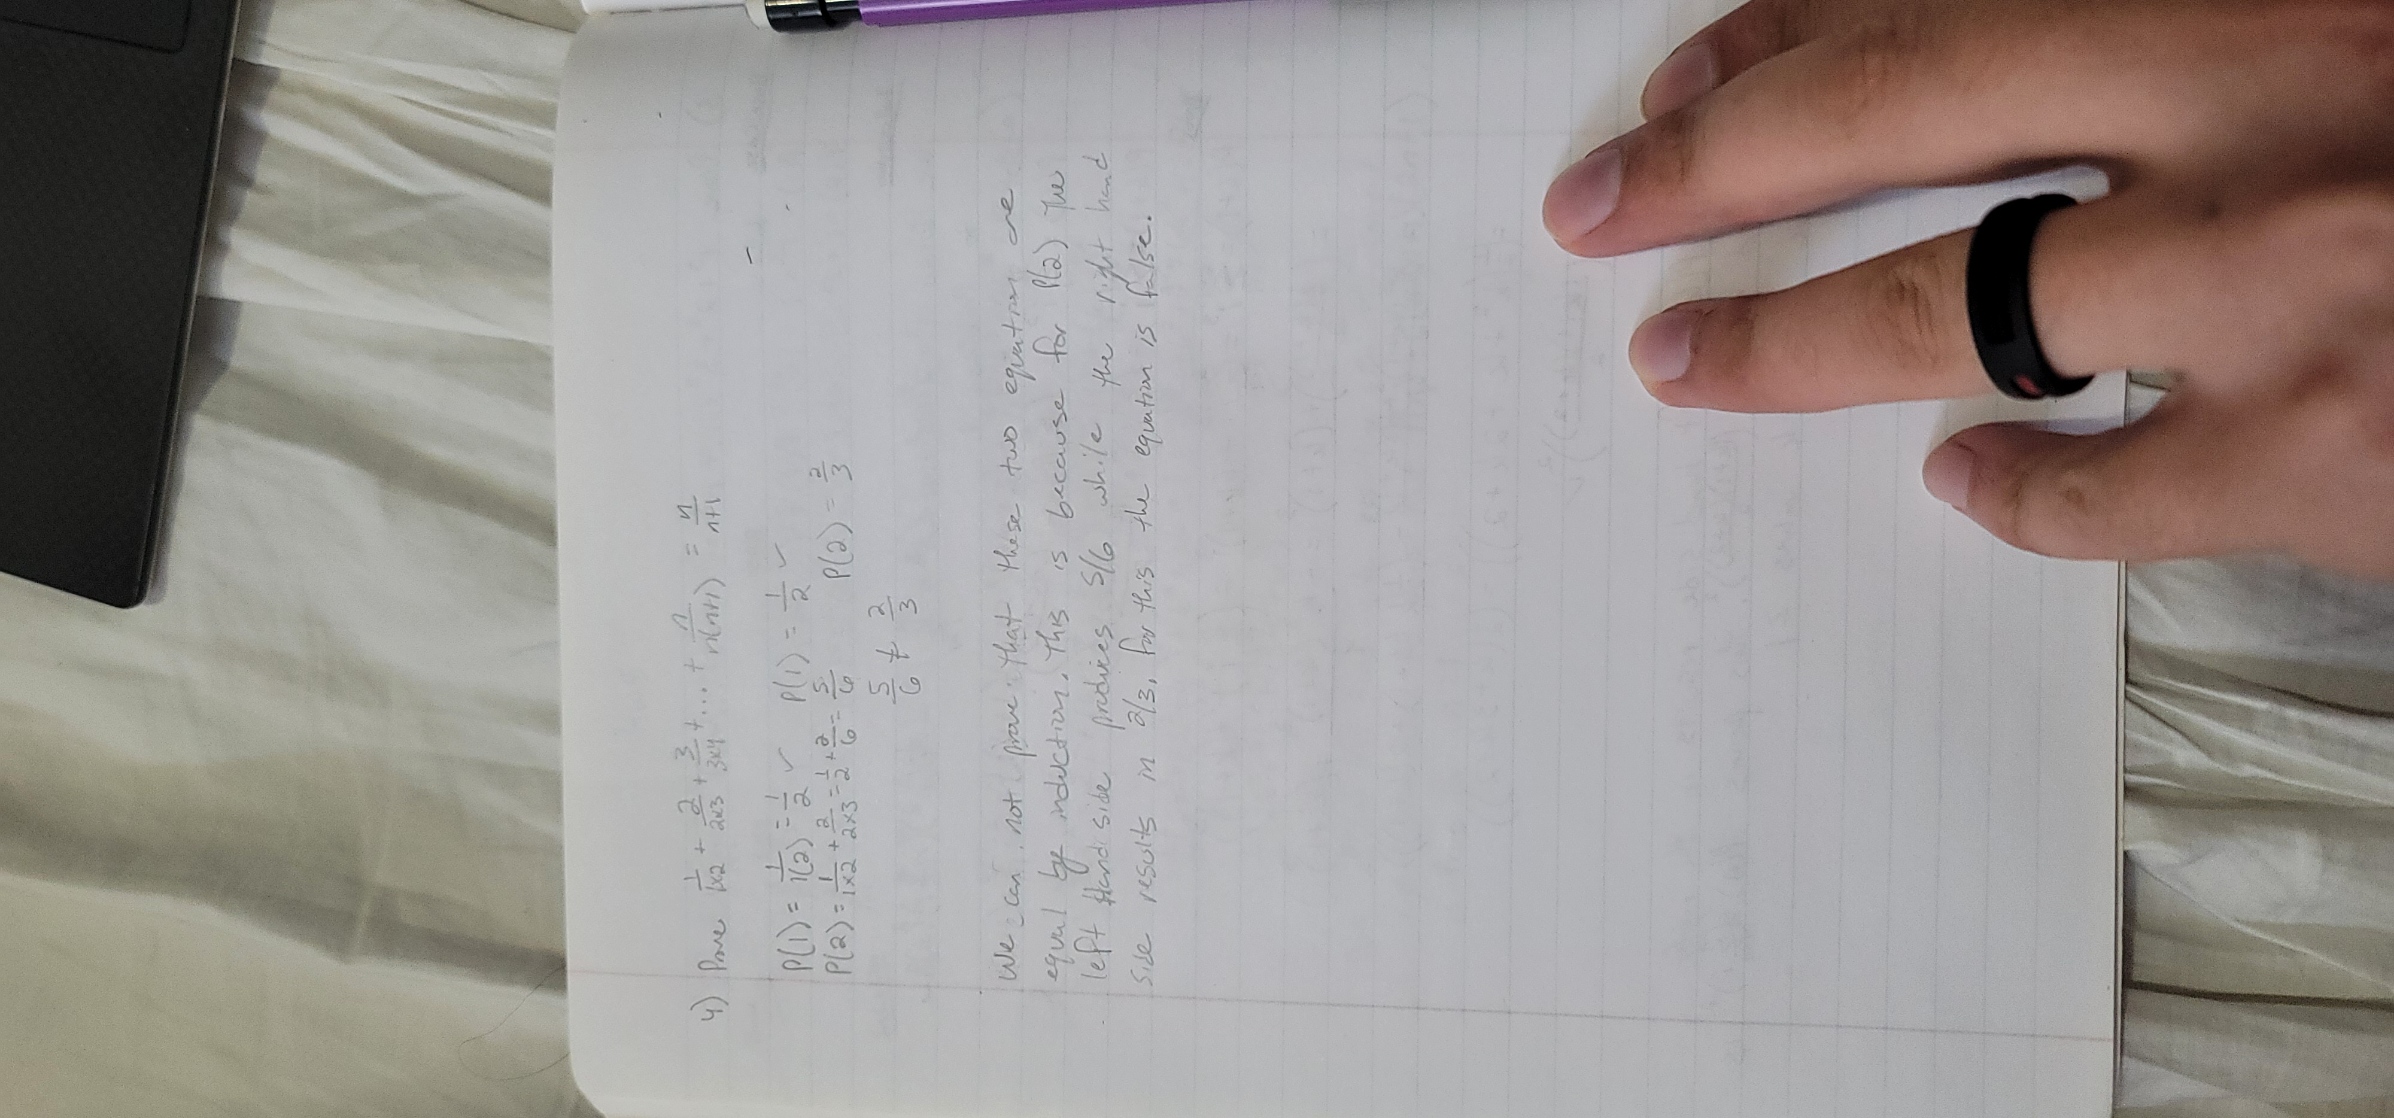 4) Prove 1/1x2 + 2/2x3 + 3/3x4 + ... + n/n(n+1) = n/n+1
P(1) = 1/1(2) = 1/2 ✓ P(1) = 1/2 ✓
P(2) = 1/1x2 + 2/2x3 = 1/2 + 2/6 = 5/6 P(2) = 2/3
5/6 ≠ 2/3
We can not prove that these two equation are
equal by induction. This is because for P(2) The
left Hand side produces 5/6 while the right hand
side results in 2/3. for this the equation is false.